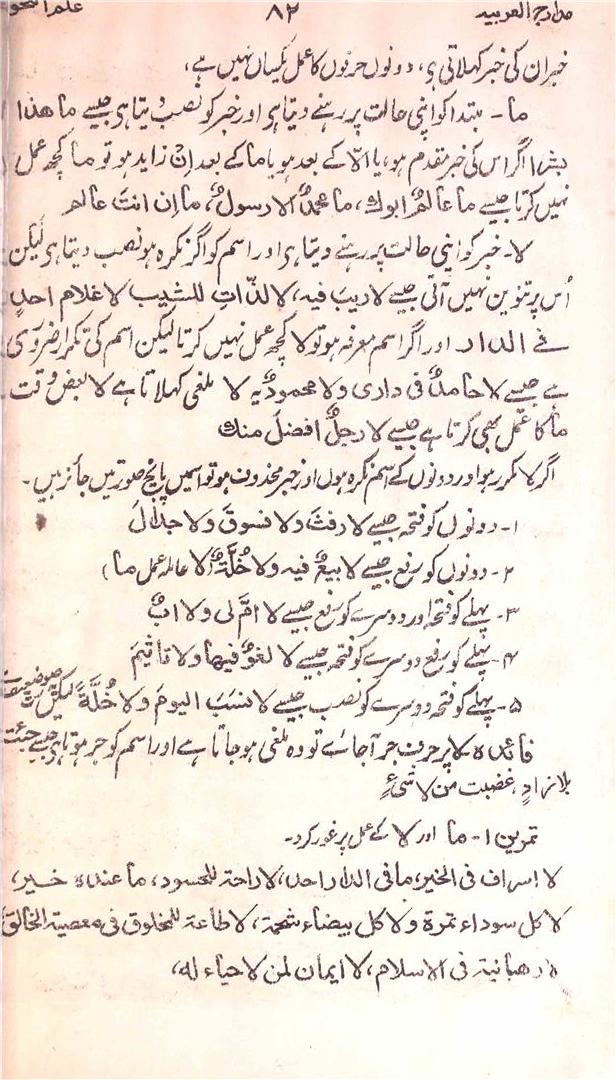 مدارج العربیہ ۸۲ علم النحو
خبر ان کی خبر کہلاتی ہے، دونوں حرفوں کا عمل یکساں نہیں ہے،
ما۔ مبتدا کو اپنی حالت پر رہنے دیتا ہی اور خبر کو نصب دیتا ہی جیسے ما ھذا
بشرا اگر اس کی خبر مقدم ہو، یا الّا کے بعد ہو یا ما کے بعد اِنْ زاید ہو تو ما کچھ عمل
نہیں کرتا جیسے ما عالمٌ ابوك، ما محمدٌ الا رسولٌ، ما اِن انتَ عالم
لا۔ خبر کو اپنی حالت پر رہنے دیتا ہی اور اسم کو اگر نکرہ ہو نصب دیتا ہی لیکن
اُس پر تنوین نہیں آتی جیسے لا ریبَ فیہ، لا لذّاتِ للشیب لا غلام احدٍ
فے الدار اور اگر اسم معرفہ ہو تو لا کچھ عمل نہیں کرتا لیکن اسم کی تکرار ضروری
ہے جیسے لا حامدٌ فی داری ولا محمودٌ یہ لا ملغی کہلاتا ہے لا بعض وقت
ما کا عمل بھی کرتا ہے جیسے لا رجلٌ افضلَ منك
اگر لا مکرر ہو اور دونوں کے اسم نکرہ ہوں اور خبر محذوف ہو تو اسمیں پانچ صورتیں جائز ہیں۔
۱۔ دونوں کو فتحہ جیسے لا رفثَ ولا فسوقَ ولا جدالَ
۲۔ دونوں کو رفع جیسے لا بیعٌ فیہ ولا خُلَّةٌ (لا عاملہ عمل ما)
۳۔ پہلے کو فتحہ اور دوسرے کو رفع جیسے لا امَّ لی ولا ابٌ
۴۔ پہلے کو رفع دوسرے کو فتحہ جیسے لا لغوٌ فیھا ولا تاثیمَ
۵۔ پہلے کو فتحہ دوسرے کو نصب جیسے لا نسَبَ الیومَ ولا خُلَّةً لیکن یہ
فائدہ لا پر حرف جر آجائے تو وہ ملغی ہو جاتا ہے اور اسم کو جر ہوتا ہی جیسے جئت
بلا زادٍ، غضبت من لا شیءٍ
تمرین ۱۔ ما اور لا کے عمل پر غور کرو۔
لا اسراف فی الخیر، ما فی الدار احد، لا راحة للحسود، ما عندہ خیر،
لا کل سوداء تمرة ولا کل بیضاء شحمة، لا طاعة للمخلوق فی معصیة الخالق
لا رھبانیة فی الاسلام، لا ایمان لمن لا حیاء لہ،